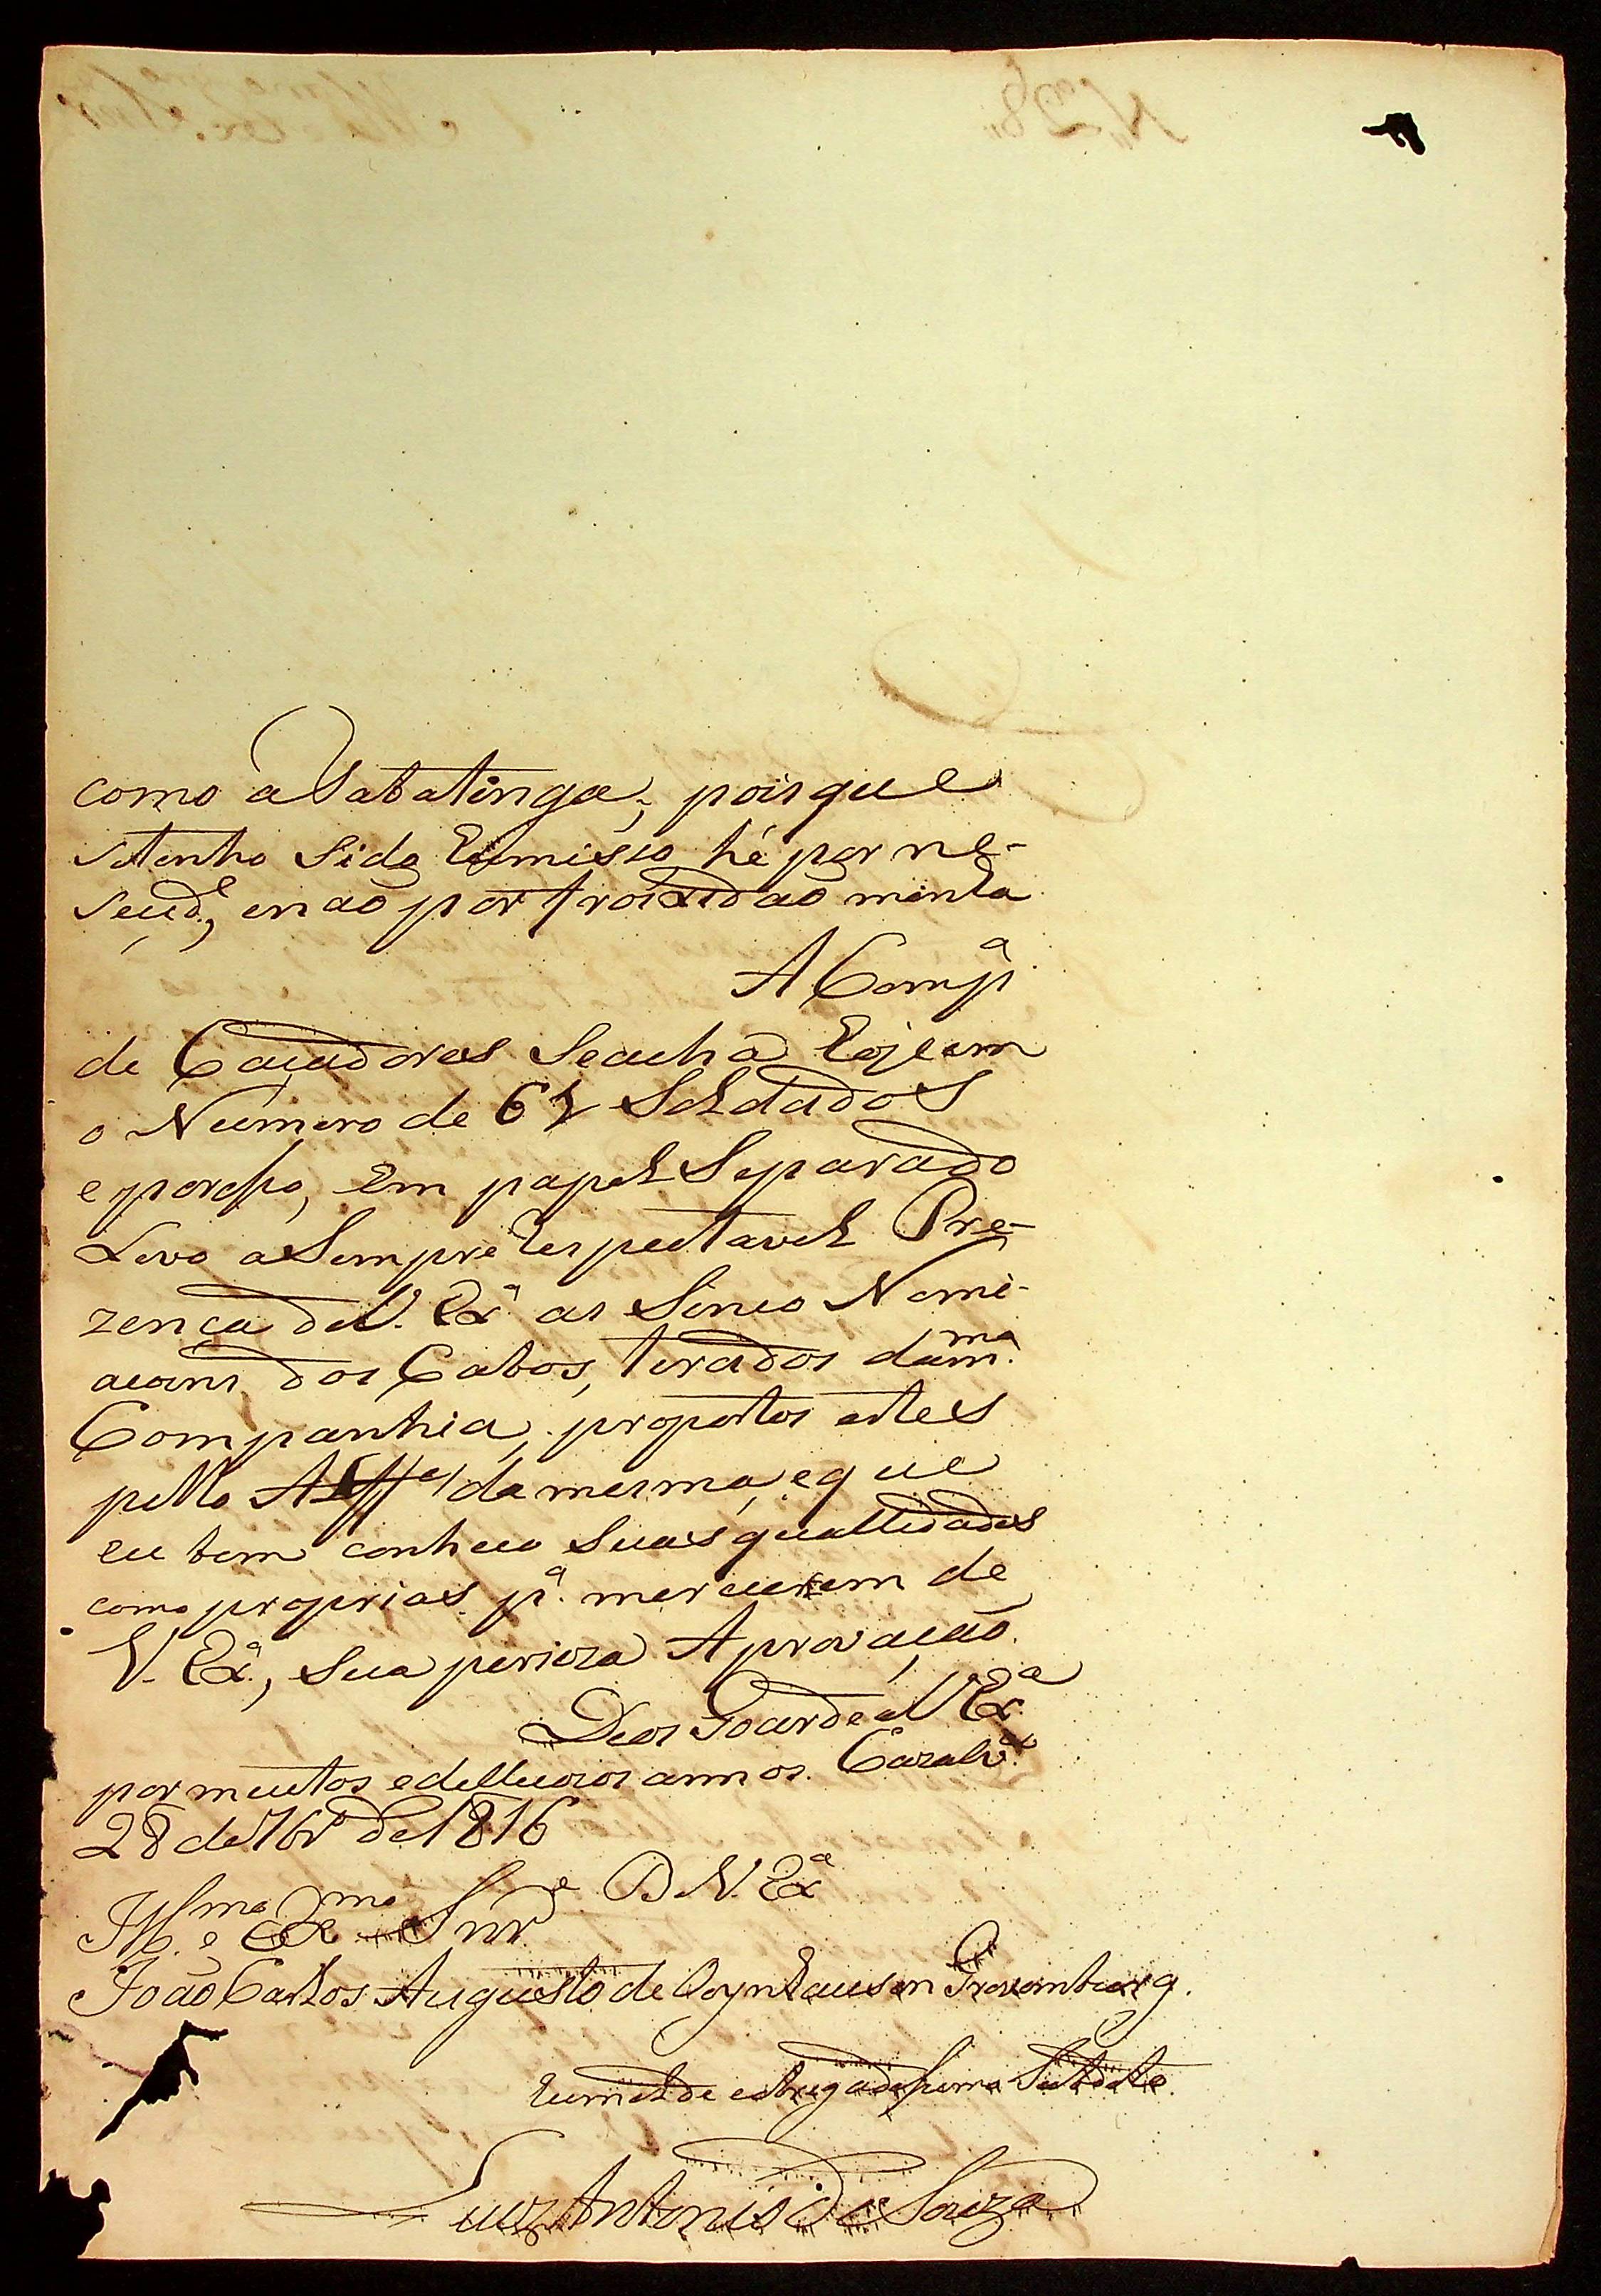 como a Tabatinga; pois que
setenho sido Remisso hé por ne-
seçid.e, enaõ por froixidaõ minha
A Comp.a
de Caçadores Seacha Hoje com
o Número de 62 Soldados
e por isso, Em papel Separado
Levo aSempre Respeitavel Pre-
zença deV. Ex.a as Sinco Nomi-
acoins dos Cabos, tirados dam.ma
Companhia, propostos estes
pello Alff.e da mesma, eque
eu bem conheco Suas quallidades
como proprias p.a merecerem de
V. Ex.a, Sua perioza Aprovaçaõ.
Deos Goarde a V Ex.a
por muitos edelleciozos annos. Cazalv.co
28 de 7br.o de 1816
D V. Ex.a
Ill.mo e Ex.mo Snr.
Joaõ Carlos Augusto de Oeynhausen Gravemburg.
Humilde eobrigadissimo Subdito.
Luiz Antonio de Souza